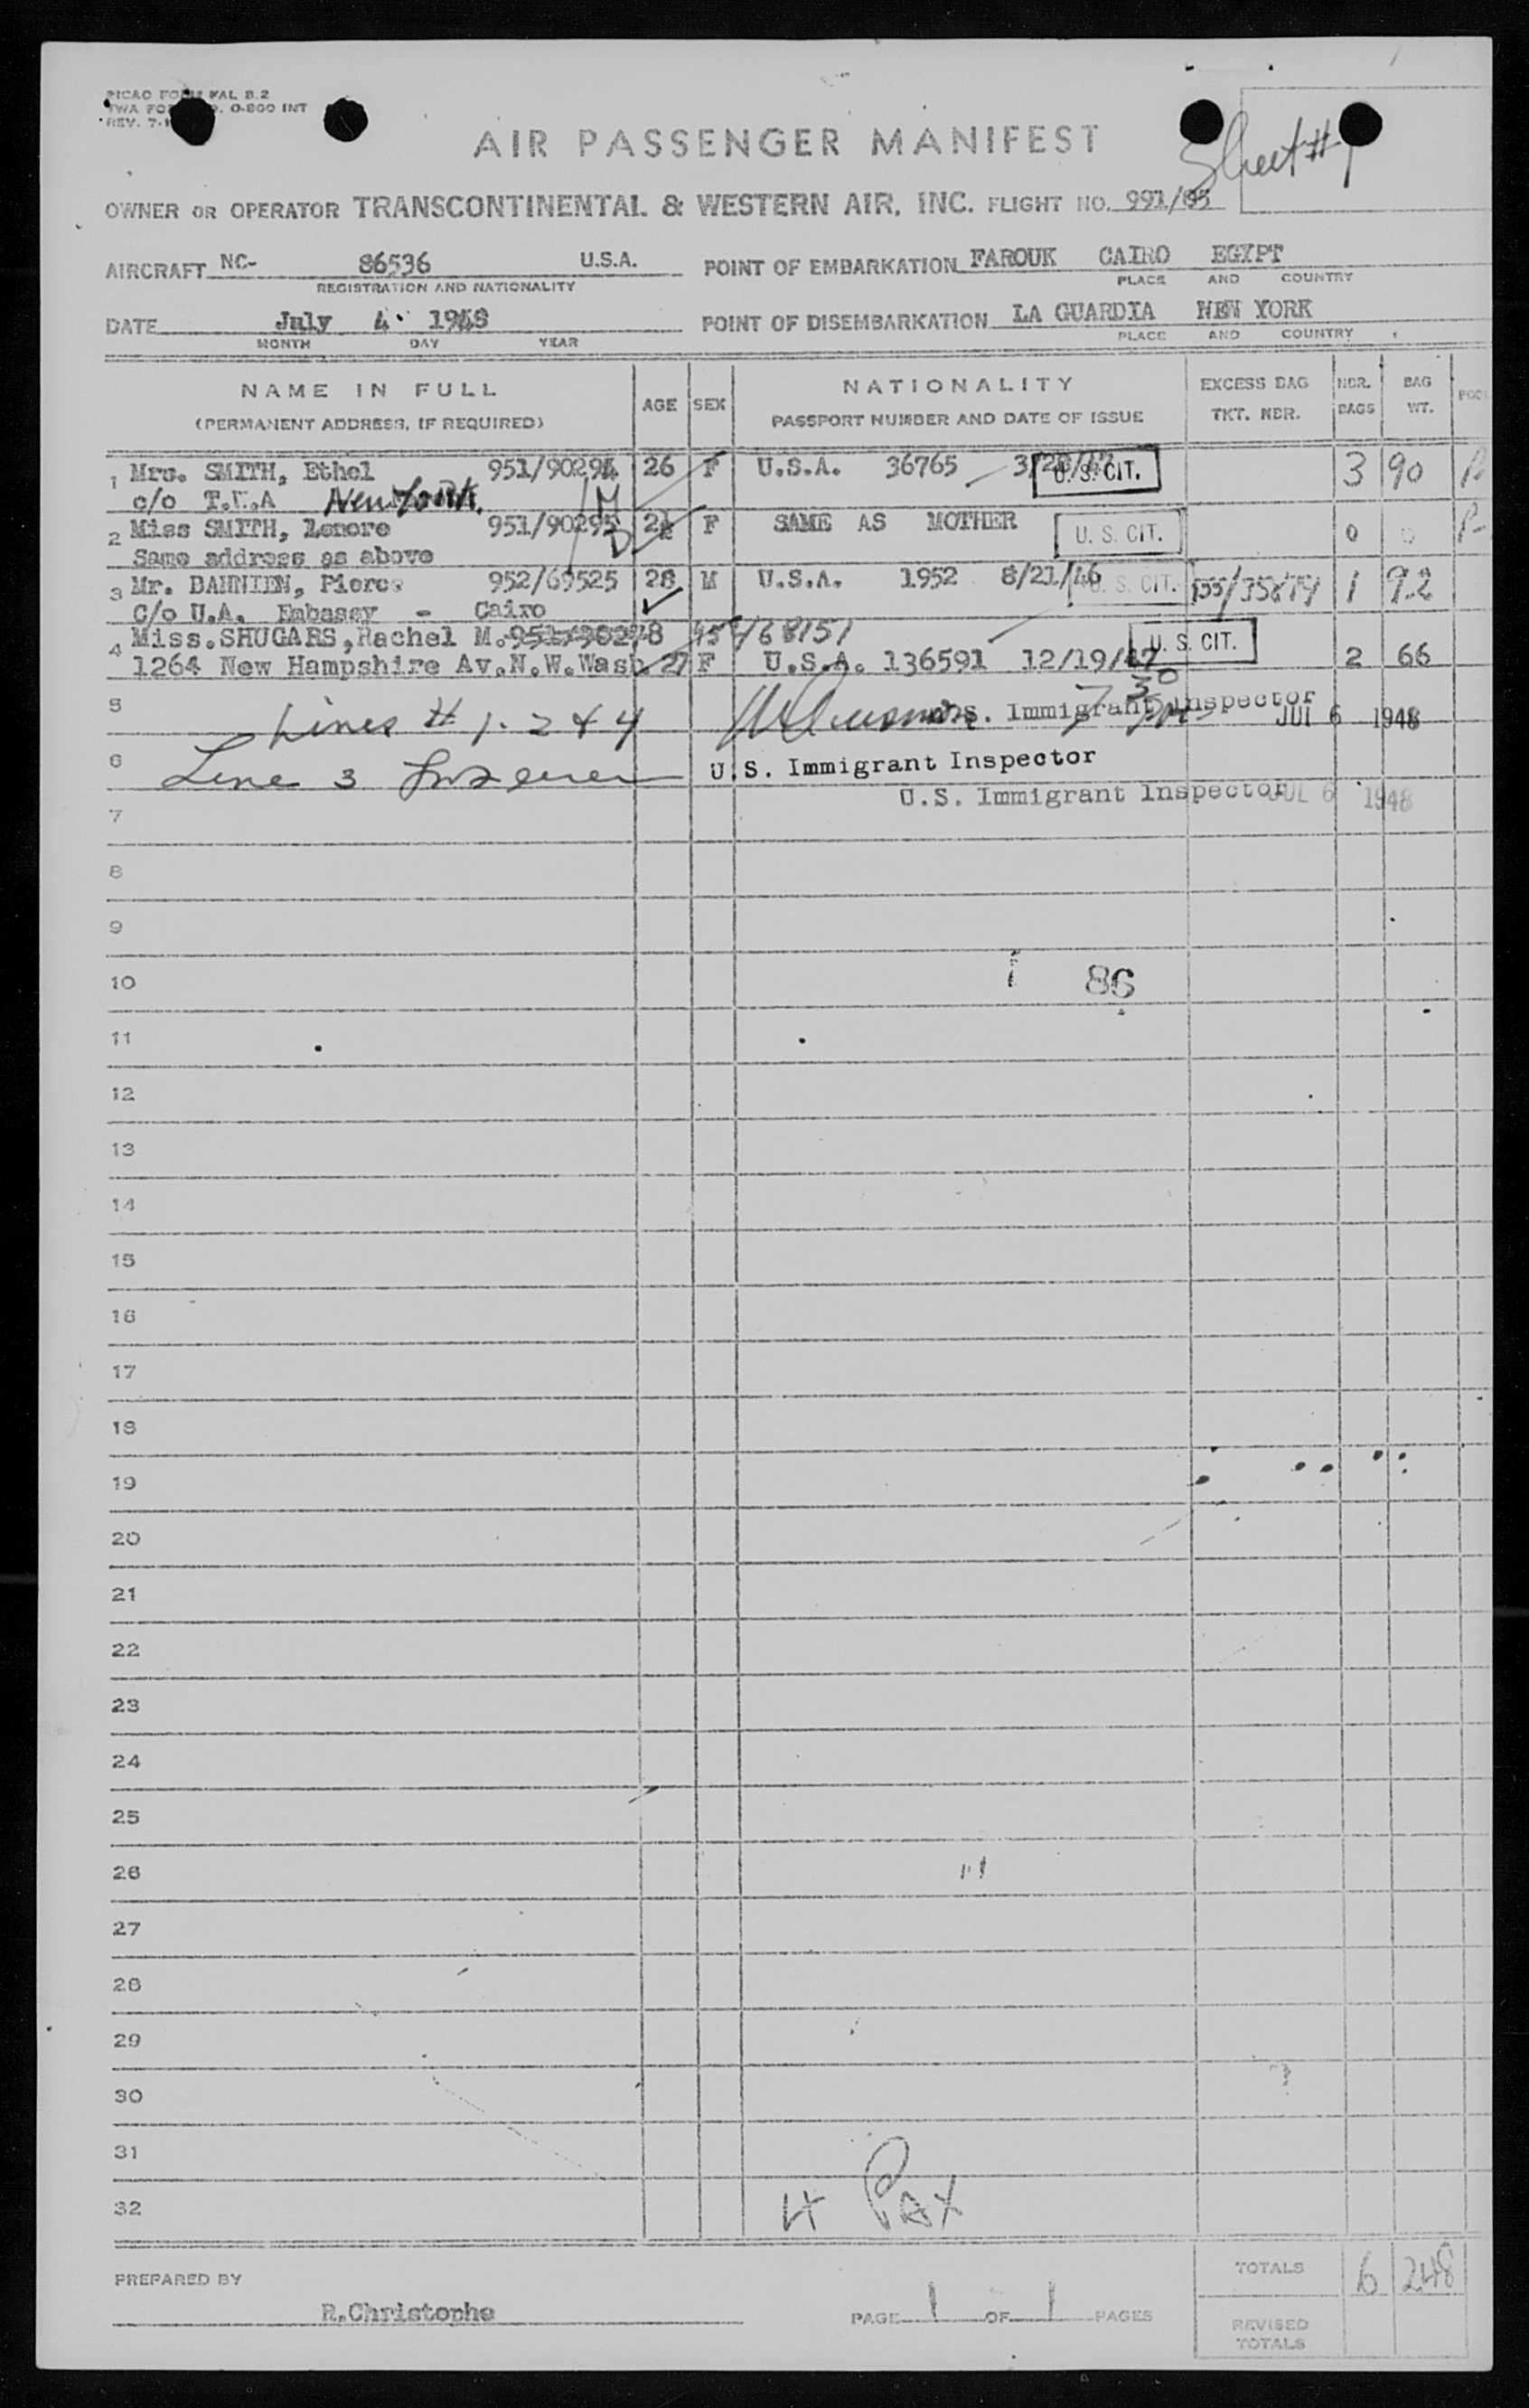 PICAO FORM FAL B.2
TWA FO O. 0-800 INT
REV. 7-1
AIR PASSENGER MANIFEST
Sheet # 1
OWNER OR OPERATOR TRANSCONTINENTAL & WESTERN AIR, INC. FLIGHT NO. 991/03
AIRCRAFT NC- 86536 U.S.A. POINT OF EMBARKATION FAROUK CAIRO EGYPT
REGISTRATION AND NATIONALITY PLACE AND COUNTRY
DATE July 4. 1948 POINT OF DISEMBARKATION LA GUARDIA NEW YORK
MONTH DAY YEAR PLACE AND COUNTRY
NAME IN FULL AGE SEX NATIONALITY EXCESS BAG NBR. BAG
(PERMANENT ADDRESS, IF REQUIRED) PASSPORT NUMBER AND DATE OF ISSUE TKT. NBR. BAGS WT.
1 Mrs. SMITH, Ethel 951/90294 26 F U.S.A. 36765 U.S. CIT. 3 90
c/o T.W.A New York.
2 Miss SMITH, Lenore 951/90295 2½ F SAME AS MOTHER U. S. CIT. 0 0
Same address as above
3 Mr. BAHNIEN, Pierce 952/69525 28 M U.S.A. 1952 8/21/46 U. S. CIT. 1 92
C/o U.A. Embassy - Cairo
4 Miss.SHUGARS,Rachel M. 951/90278 /68151 U. S. CIT.
1264 New Hampshire Av.N.W.Wash. 27 F U.S.A. 136591 12/19/47 2 66
5 Lines # 1-2 & 4 U.S. Immigrant Inspector JUL 6 1948
7 30
6 Line 3 U.S. Immigrant Inspector
U.S. Immigrant Inspector JUL 6 1948
7
8
9
10 86
11
12
13
14
15
16
17
18
19
20
21
22
23
24
25
26
27
28
29
30
31
32 4 PAX
TOTALS 6 248
PREPARED BY R.Christophe
PAGE 1 OF 1 PAGES
REVISED
TOTALS